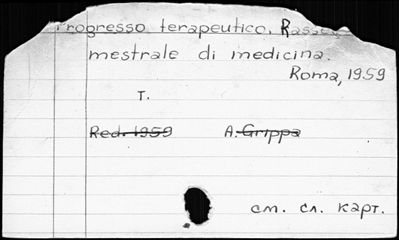 Progresso terapeutico. Rasse
mestrale di medicina.
Roma, 1959
T.
Red. 1959 A. Grippa
см. сл. карт.